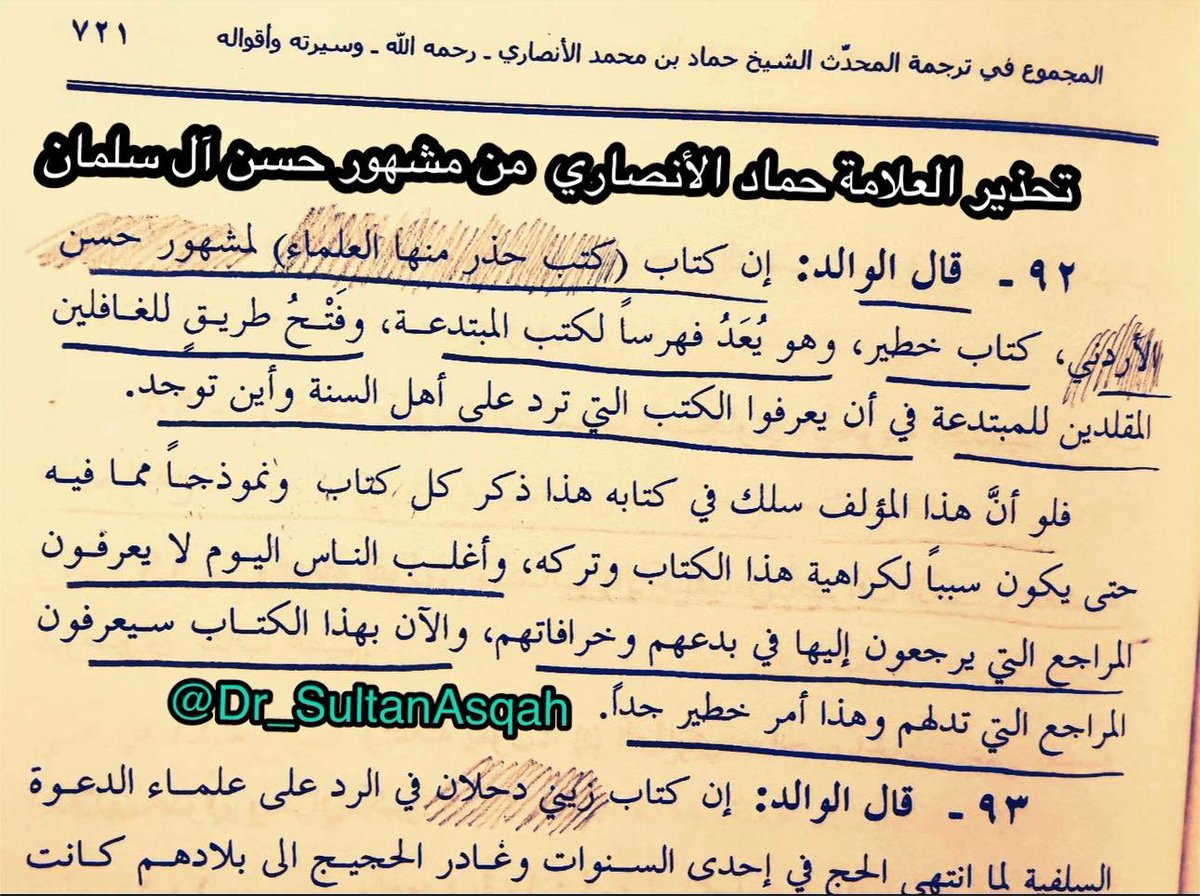 المجموع في ترجمة المحدّث الشيخ حماد بن محمد الأنصاري ـ رحمه الله ـ وسيرته وأقواله ٧٢١
تحذير العلامة حماد الأنصاري من مشهور حسن آل سلمان
٩٢ ـ قال الوالد: إن كتاب (كتب حذر منها العلماء) لمشهور حسن
الأردني، كتاب خطير، وهو يُعَدُ فهرساً لكتب المبتدعة، وفَتْحُ طريقٍ للغافلين
المقلدين للمبتدعة في أن يعرفوا الكتب التي ترد على أهل السنة وأين توجد.
فلو أنَّ هذا المؤلف سلك في كتابه هذا ذكر كل كتاب ونموذجاً مما فيه
حتى يكون سبباً لكراهية هذا الكتاب وتركه، وأغلب الناس اليوم لا يعرفون
المراجع التي يرجعون إليها في بدعهم وخرافاتهم، والآن بهذا الكتاب سيعرفون
المراجع التي تدلهم وهذا أمر خطير جداً.
@Dr_SultanAsqah
٩٣ ـ قال الوالد: إن كتاب زيني دحلان في الرد على علماء الدعوة
السلفية لما انتهى الحج في إحدى السنوات وغادر الحجيج الى بلادهم كانت